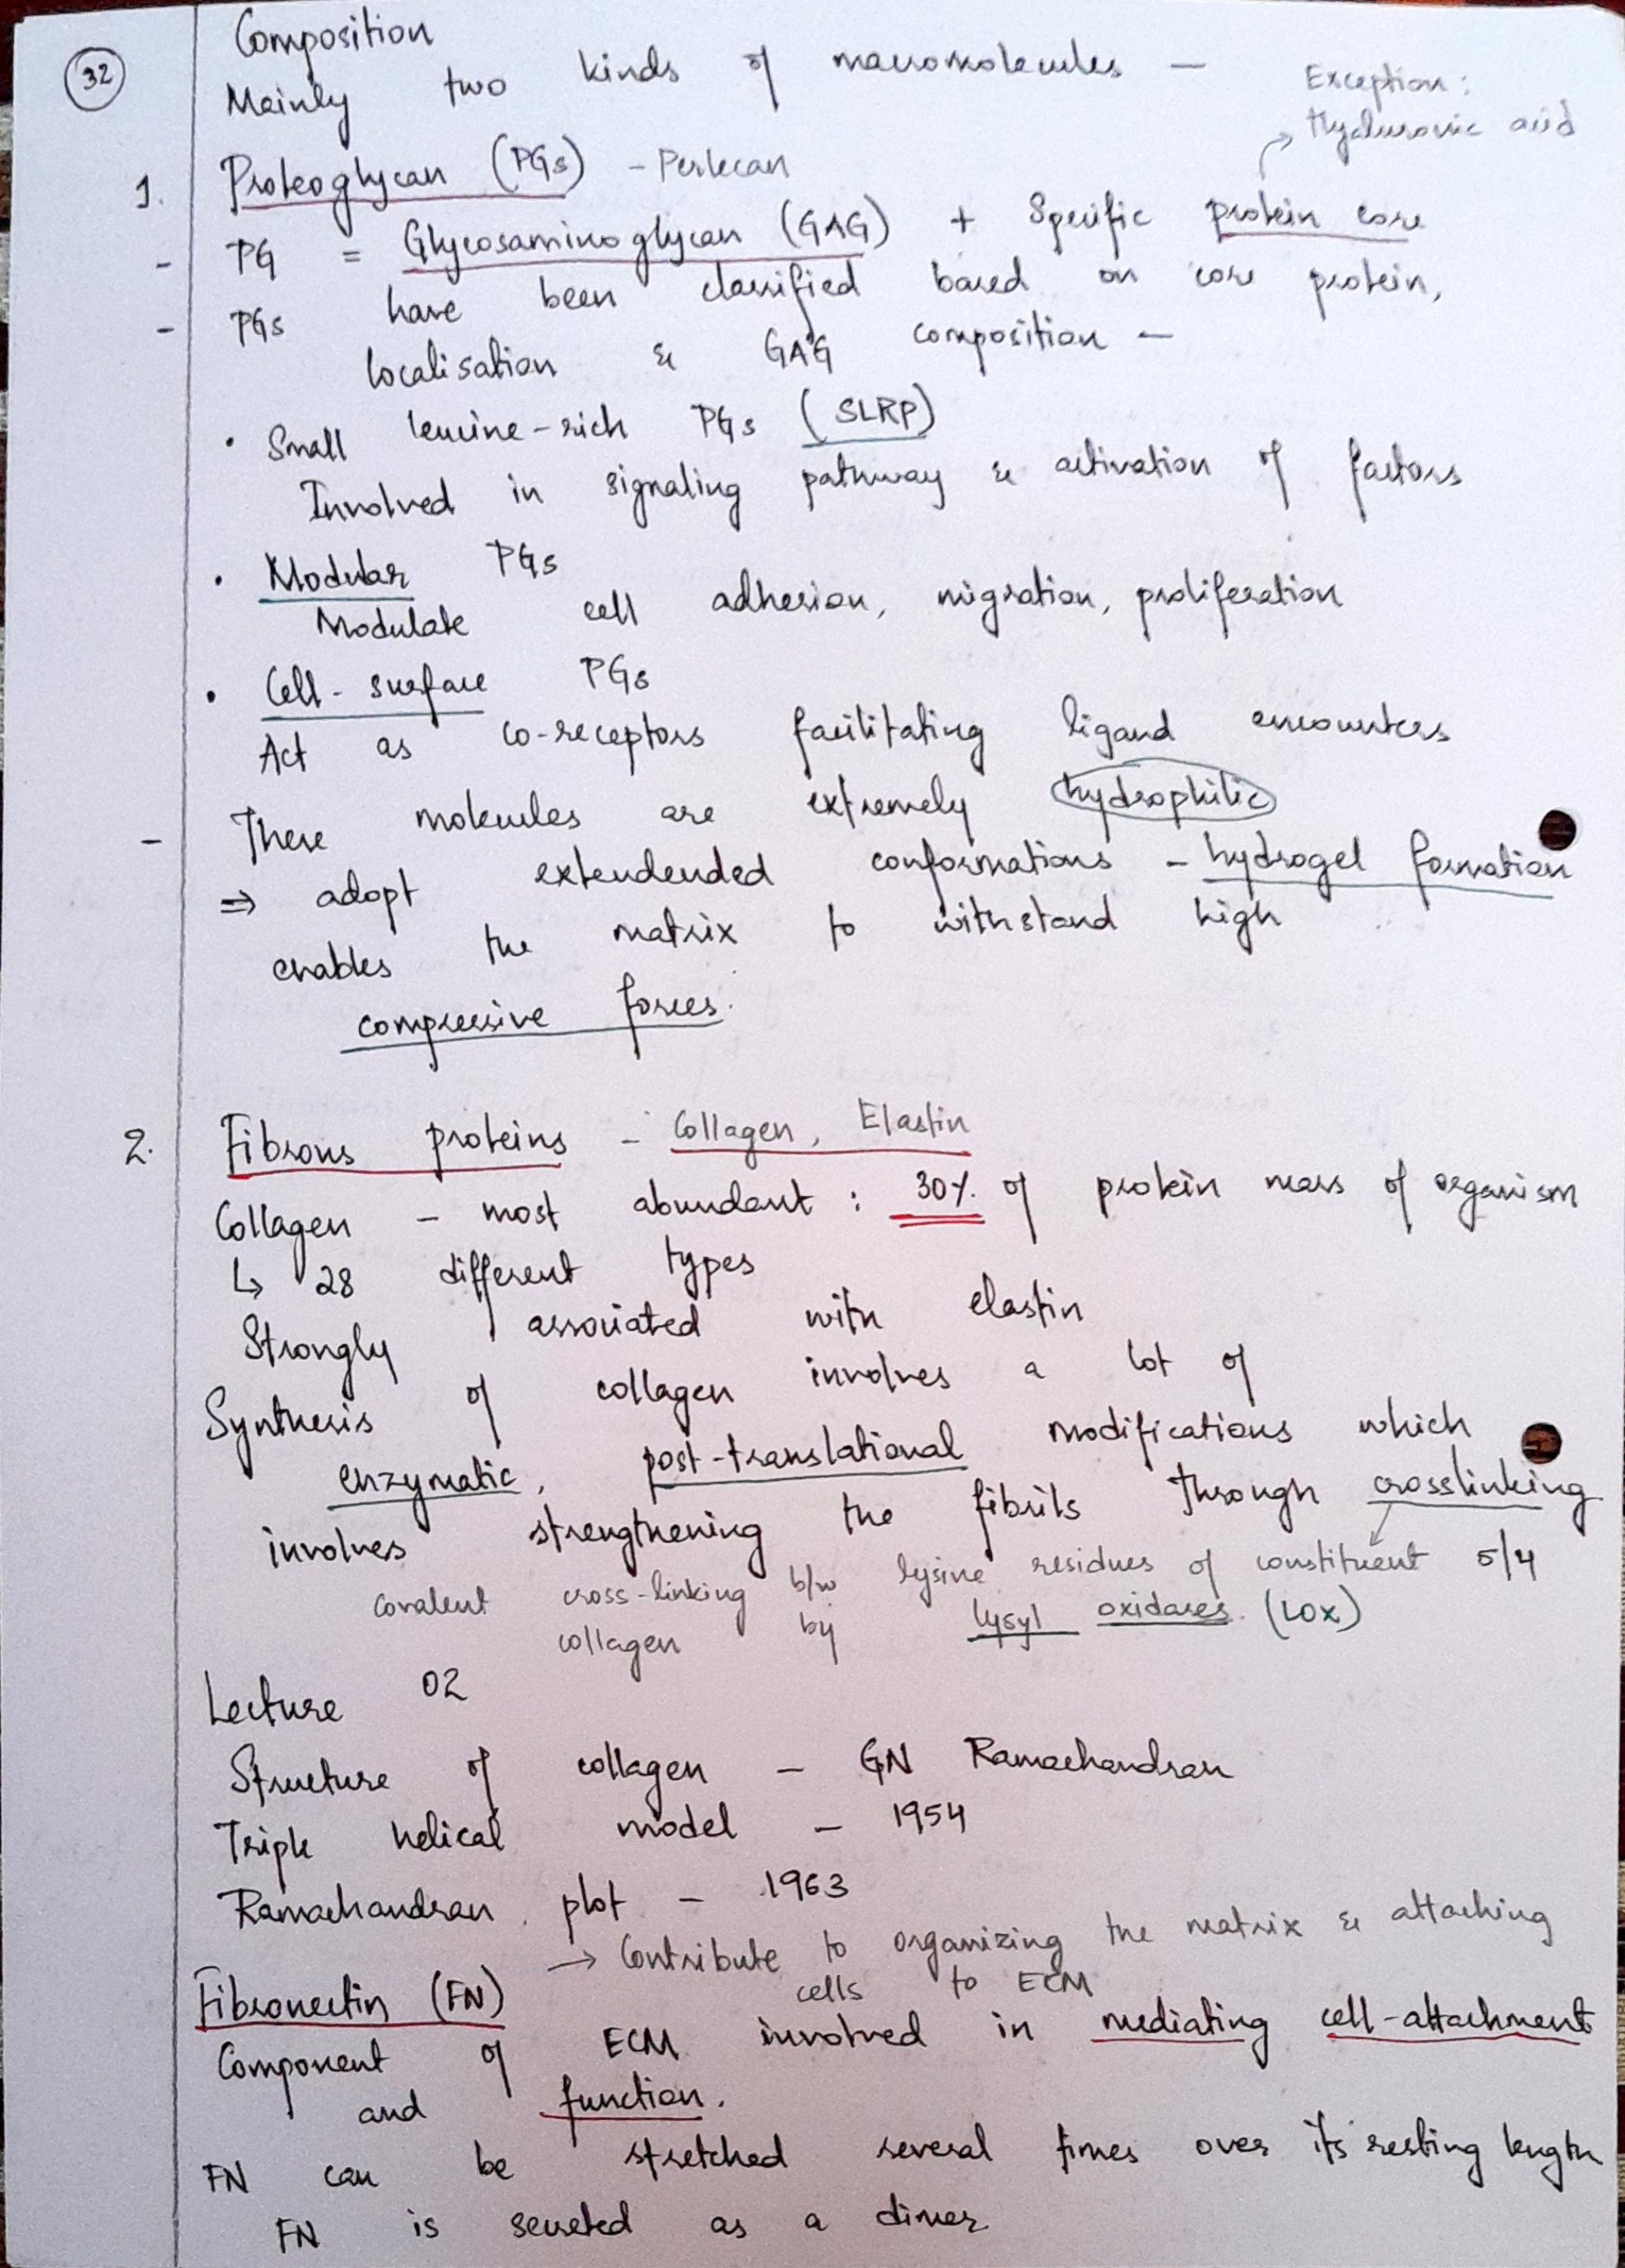 32
Composition
Mainly two kinds of macromolecules —
Exception:
Hyaluronic acid
1. Proteoglycan (PGs) - Perlecan
- PG = Glycosaminoglycan (GAG) + Specific protein core
- PGs have been classified based on core protein,
localisation & GAG composition —
• Small leucine-rich PGs (SLRP)
Involved in signaling pathway & activation of factors
• Modular PGs
Modulate cell adhesion, migration, proliferation
• Cell-surface PGs
Act as co-receptors facilitating ligand encounters
- These molecules are extremely hydrophilic
⇒ adopt extendended conformations - hydrogel formation
enables the matrix to withstand high
compressive forces.
2. Fibrous proteins - Collagen, Elastin
Collagen - most abundant : 30% of protein mass of organism
↳ 28 different types
Strongly associated with elastin
Synthesis of collagen involves a lot of
enzymatic, post-translational modifications which
involves strengthening the fibrils through crosslinking
covalent cross-linking b/w lysine residues of constituent 5/4
collagen by lysyl oxidases. (LOX)
Lecture 02
Structure of collagen - GN Ramachandran
Triple helical model - 1954
Ramachandran plot - 1963
→ Contribute to organizing the matrix & attaching
cells to ECM
Fibronectin (FN)
Component of ECM involved in mediating cell-attachment
and function.
FN can be stretched several times over its resting length
FN is secreted as a dimer